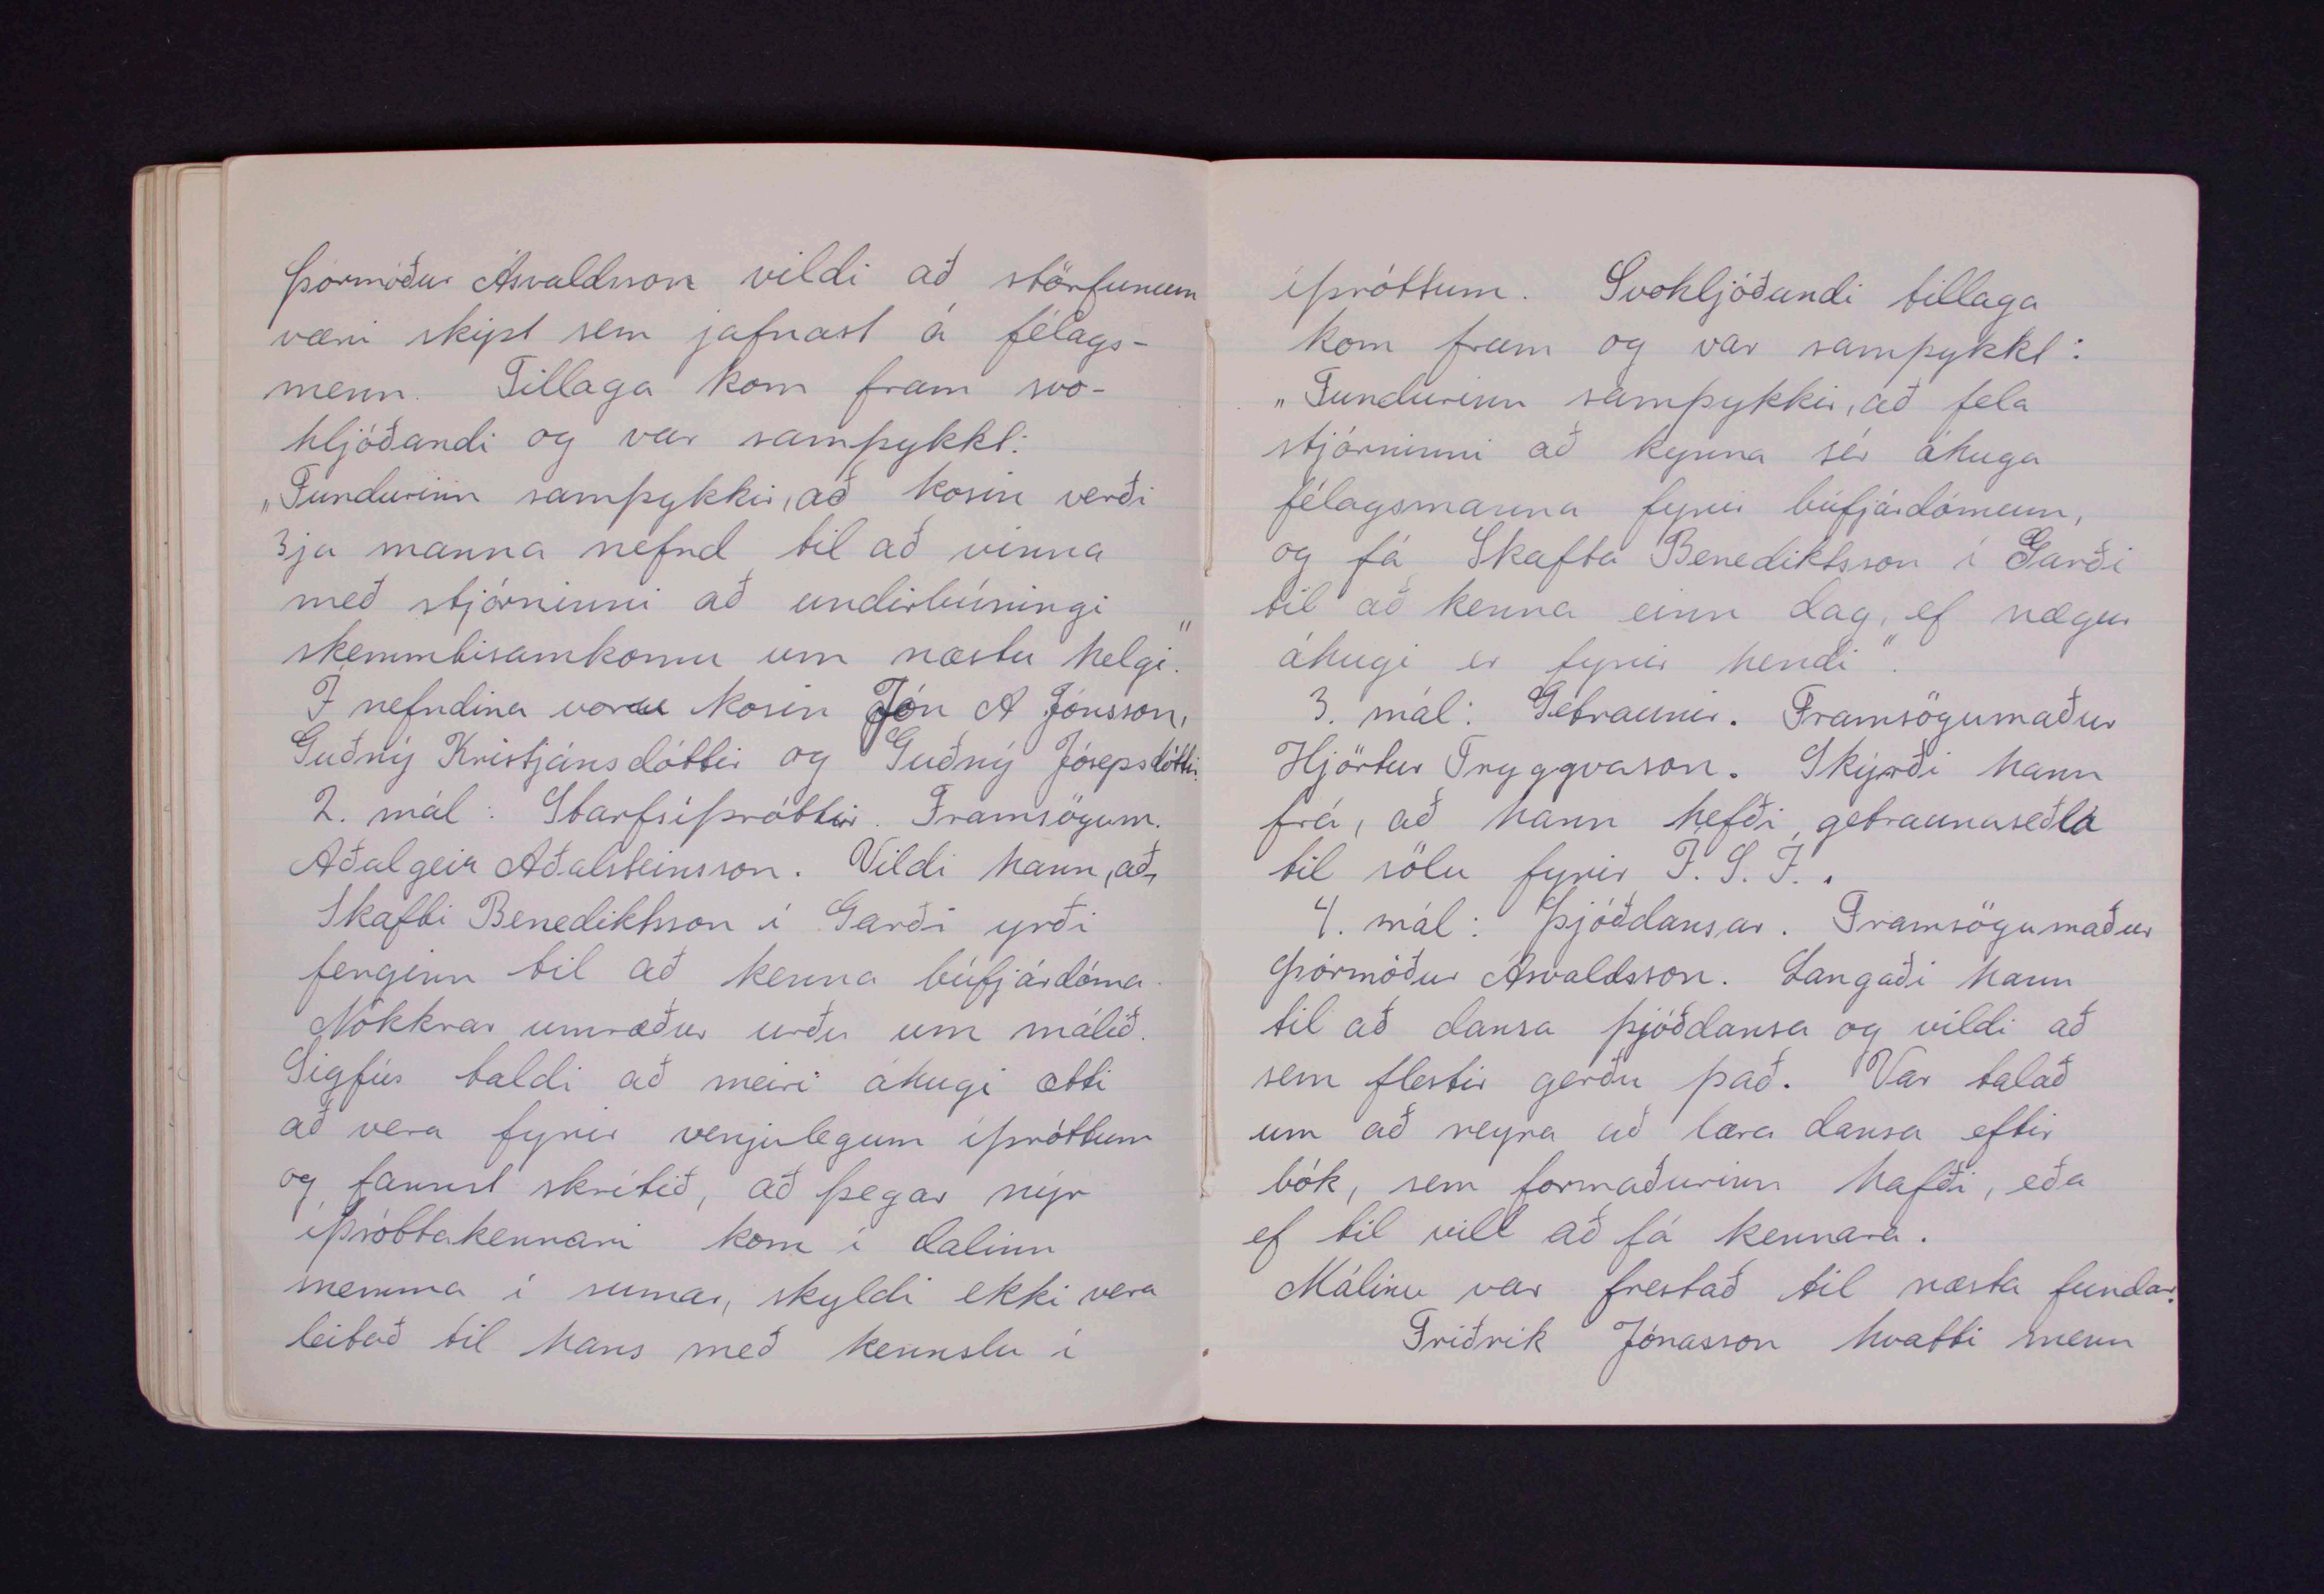 Þórmóður Ásvaldsson vildi að störfunum
væri skipt sem jafnast á félags-
menn. Tillaga kom fram svo-
hljóðandi og var samþykkt:
„Fundurinn samþykkir, að kosin verði
3ja manna nefnd til að vinna
með stjórninni að undirbúningi
skemmtisamkomu um næstu helgi."
Í nefndina voru kosin Jón A Jónsson,
Guðný Kristjánsdóttir og Guðný Jósepsdóttir.
2. mál: Starfsíþróttir. Framsögum.
Aðalgeir Aðalsteinsson. Vildi hann, að
Skafti Benediktsson í Garði yrði
fenginn til að kenna búfjárdóma.
Nokkrar umræður urðu um málið.
Sigfús taldi að meiri áhugi ætti
að vera fyrir venjulegum íþróttum
og fannst skrítið, að þegar nýr
íþróttakennari kom í dalinn
snemma í sumar, skyldi ekki vera
leitað til hans með kennslu í
íþróttum. Svohljóðandi tillaga
kom fram og var samþykkt:
„Fundurinn samþykkir, að fela
stjórninni að kynna sér áhuga
félagsmanna fyrir búfjárdómum,
og fá Skafta Benediktsson í Garði
til að kenna einn dag, ef nægur
áhugi er fyrir hendi".
3. mál: Getraunir. Framsögumaður
Hjörtur Tryggvason. Skýrði hann
frá, að hann hefði getraunaseðla
til sölu fyrir Í. S. Í..
4. mál: Þjóðdansar. Framsögumaður
Þórmóður Ásvaldsson. Langaði hann
til að dansa þjóðdansa og vildi að
sem flestir gerðu það. Var talað
um að reyna að læra dansa eftir
bók, sem formaðurinn hafði, eða
ef til vill að fá kennara.
Málinu var frestað til næsta fundar.
Friðrik Jónasson hvatti menn